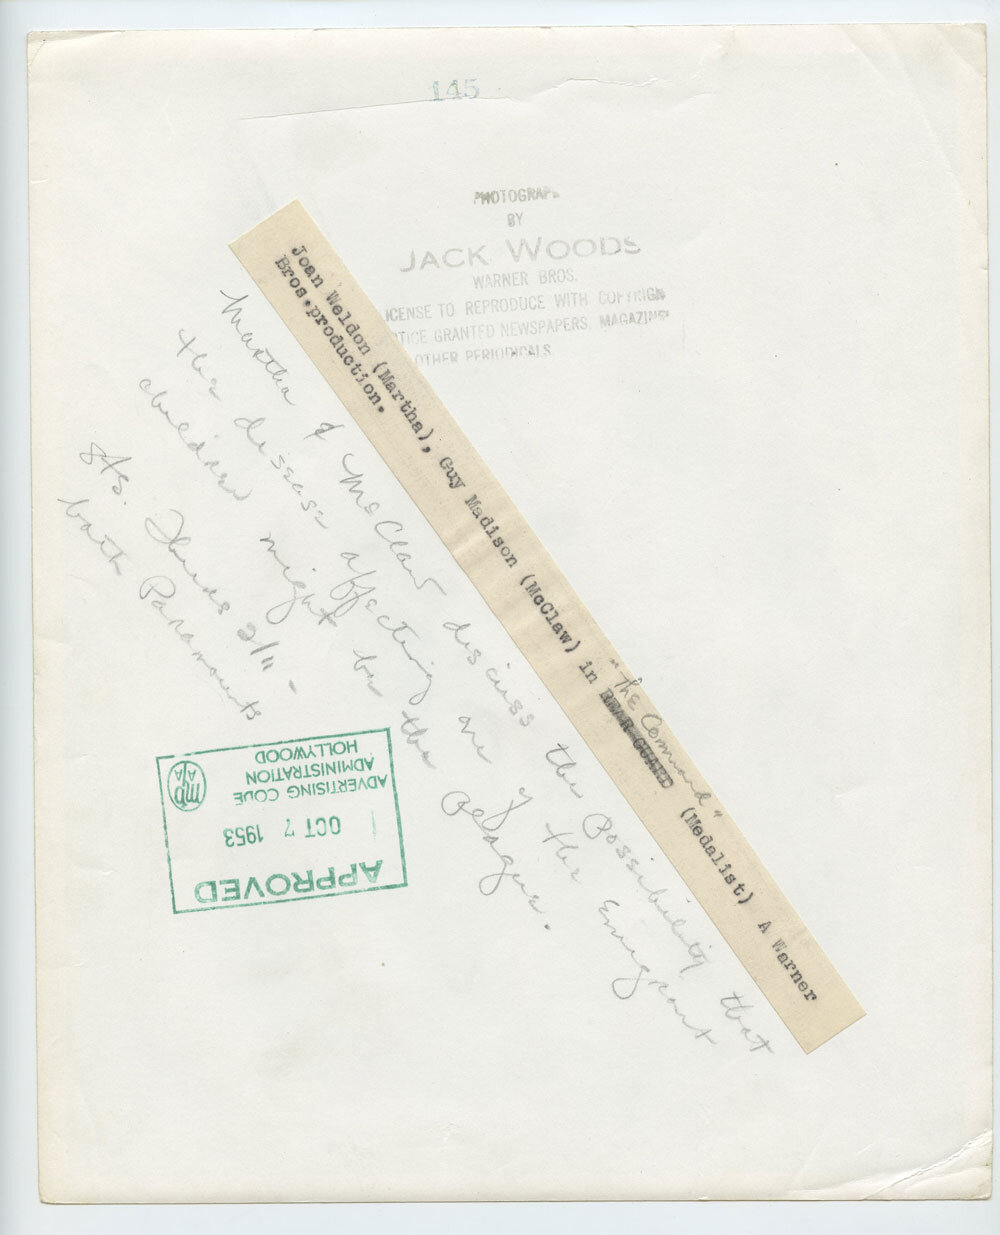 145
PHOTOGRAPH
BY
JACK WOODS
WARNER BROS.
LICENSE TO REPRODUCE WITH COPYRIGH
NOTICE GRANTED NEWSPAPERS, MAGAZINES
OTHER PERIODICALS.
Joan Weldon (Martha), Guy Madison (McClaw) in REAR GUARD "The Command" (Medalist) A Warner
Bros.production.
Martha & McClaw discuss the possibility that
the disease affecting one of the emigrant
children might be the plague.
Sts. Thurs 2/11 -
both Paramounts
APPROVED
OCT 7 1953
ADVERTISING CODE
ADMINISTRATION
HOLLYWOOD